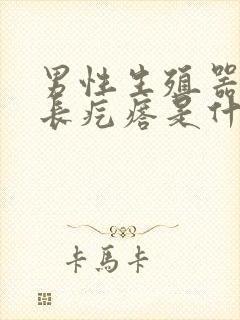 男性生殖器
長疙瘩是什
卡馬卡